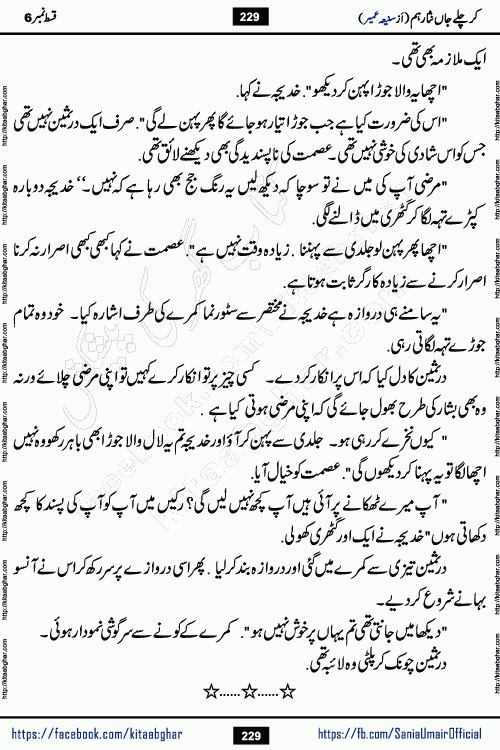 کر چلے جاں نثار ہم (از سنیعہ عمیر)
229
قسط نمبر 6
ایک ملازمہ بھی تھی۔
"اچھا یہ والا جوڑا پہن کر دیکھو"۔ خدیجہ نے کہا۔
"اس کی ضرورت کیا ہے جب جوڑا تیار ہو جائے گا پھر پہن لے گی"۔ صرف ایک در ثمین نہیں تھی
جس کو اس شادی کی خوشی نہیں تھی۔ عصمت کی ناپسندیدگی بھی دیکھنے لائق تھی۔
"مرضی آپ کی میں نے تو سوچا کہ دیکھ لیں یہ رنگ جچ بھی رہا ہے کہ نہیں۔‘‘ خدیجہ دوبارہ
کپڑے تہہ لگا کر گٹھری میں ڈالنے لگی۔
"اچھا پھر پہن لو جلدی سے پہننا ۔ زیادہ وقت نہیں ہے"۔ عصمت نے کہا کبھی کبھی اصرار نہ کرنا
اصرار کرنے سے زیادہ کارگر ثابت ہوتا ہے۔
"یہ سامنے ہی دروازہ ہے خدیجہ نے مختصر سے سٹور نما کمرے کی طرف اشارہ کیا۔ خود وہ تمام
جوڑے تہہ لگاتی رہی۔
در ثمین کا دل کیا کہ اس پر انکار کر دے۔ کسی چیز پر تو انکار کرے کہیں تو اپنی مرضی چلائے ورنہ
وہ بھی بشار کی طرح بھول جائے گی کہ اپنی مرضی ہوتی کیا ہے ۔
" کیوں نخرے کر رہی ہو۔ جلدی سے پہن کر آؤ اور خدیجہ تم یہ لال والا جوڑا بھی باہر رکھو وہ نہیں
اچھا لگا تو یہ پہنا کر دیکھوں گی"۔ عصمت کو خیال آیا۔
" آپ میرے ٹھکانے پر آئی ہیں آپ کچھ نہیں لیں گی؟ رکیں میں آپ کو آپ کی پسند کا کچھ
دکھاتی ہوں" خدیجہ نے ایک اور گٹھری کھولی۔
در ثمین تیزی سے کمرے میں گئی اور دروازہ بند کر لیا ۔ پھر اسی دروازے پر سر رکھ کر اس نے آنسو
بہانے شروع کر دیے۔
"دیکھا میں جانتی تھی تم یہاں پر خوش نہیں ہو"۔ کمرے کے کونے سے سرگوشی نمودار ہوئی۔
در ثمین چونک کر پلٹی وہ لائبہ تھی۔
☆......☆......☆
https://facebook.com/kitaabghar
229
https://fb.com/SaniaUmairOfficial
http://kitaabghar.com